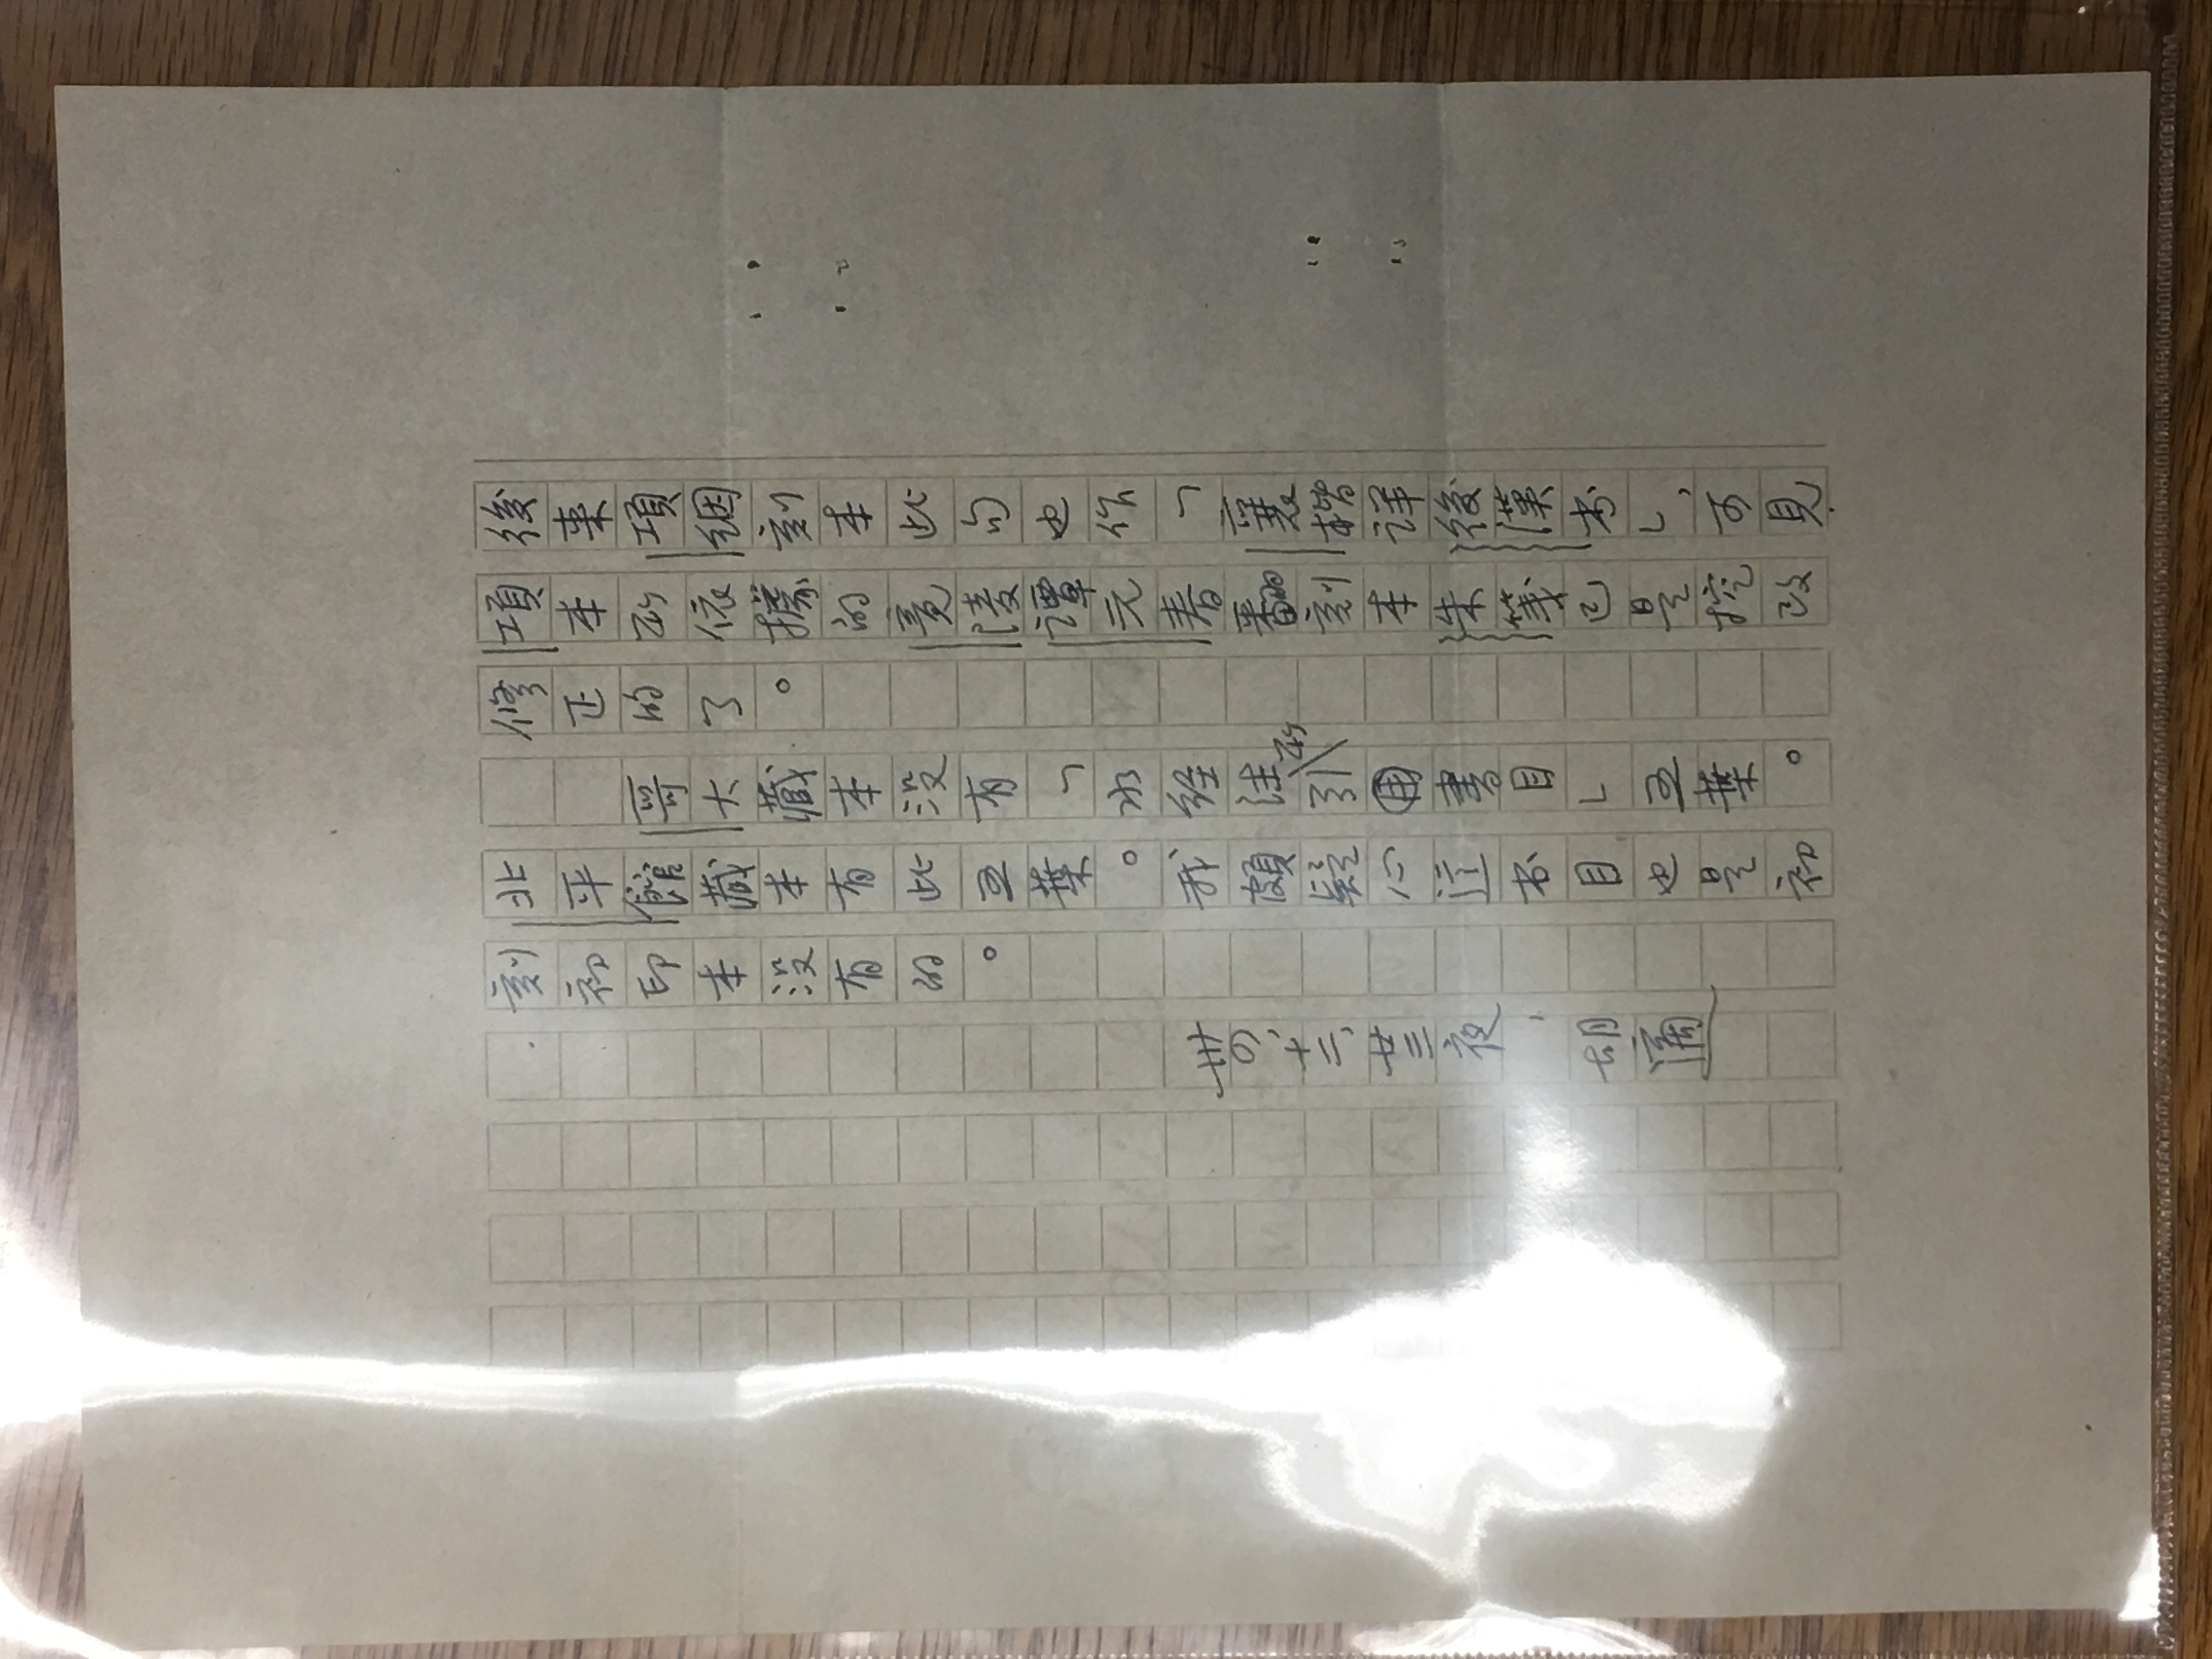 後来項絪刻本此句也作「襄楷詳後漢书」，可見
項本所依據的竟陵譚元春翻刻本朱箋已是挖改
修正的了。
哥大藏本没有「水经注所引用書目」五葉。
北平館藏本有此五葉。我頗疑心這书目也是初
刻初印本没有的。
卅四，十二，廿三夜，胡適